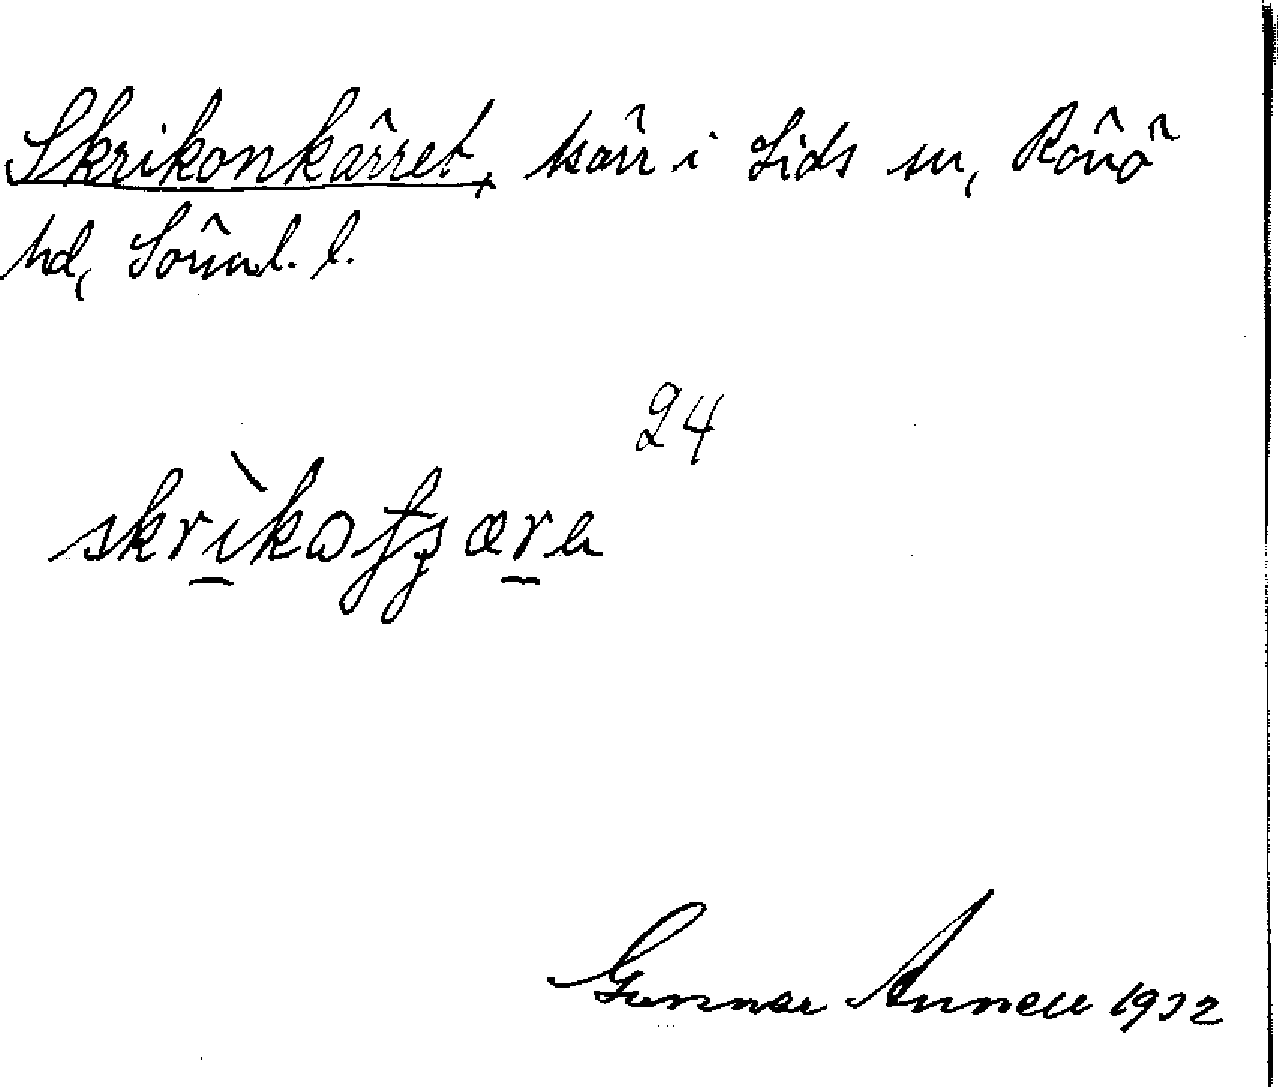 Skrikonkärret, kärr i Lids sn, Rönö
hd, Sörml. l.
24
Gunnar Annell 1932